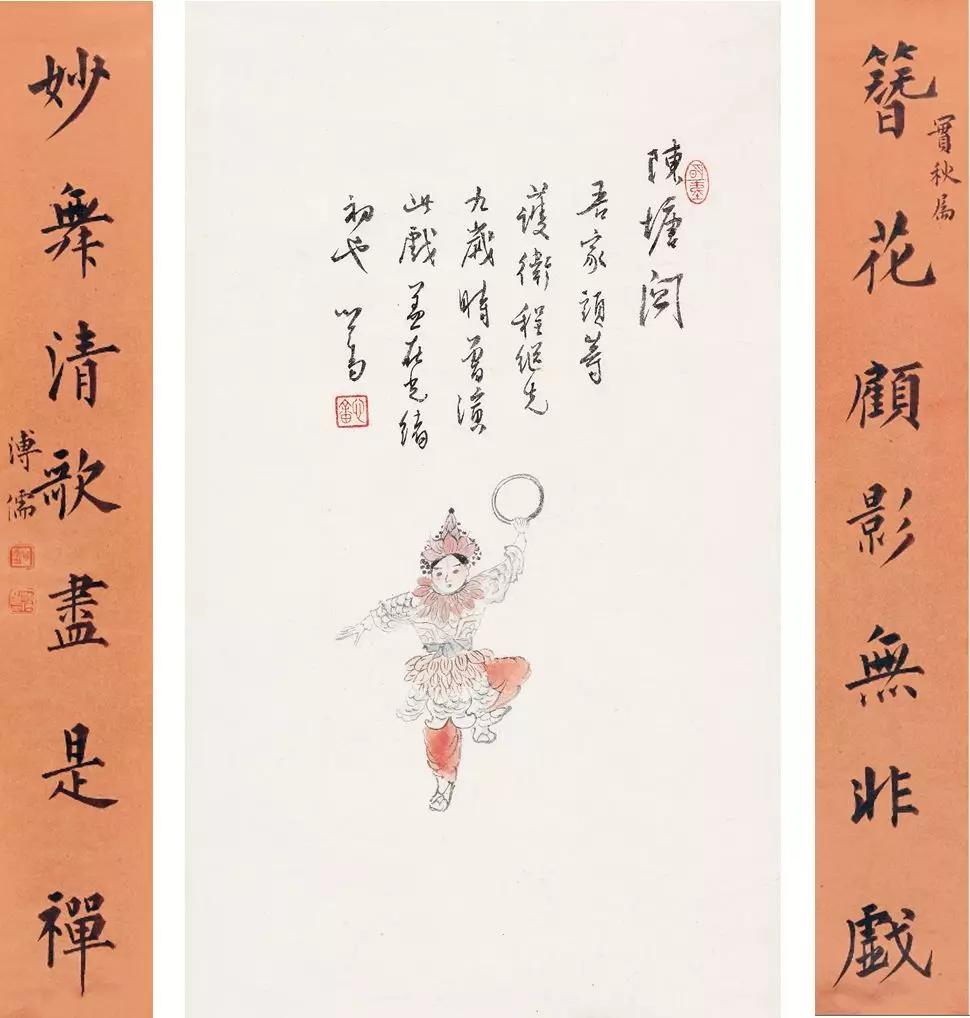 實秋属
簪花顧影無非戲
陳塘關
吾家頭等
護衛程継先
九歲時曾演
此戲蓋在光緒
初也 心畬
妙舞清歌盡是禪
溥儒